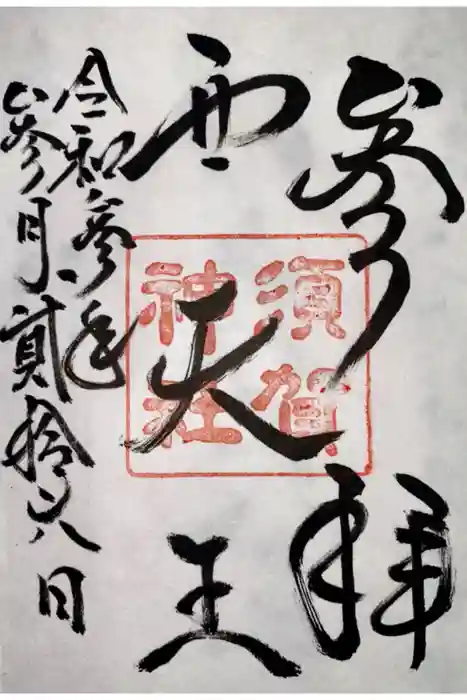 参拝
西天王
須賀
神社
令和参年
参月貳拾六日